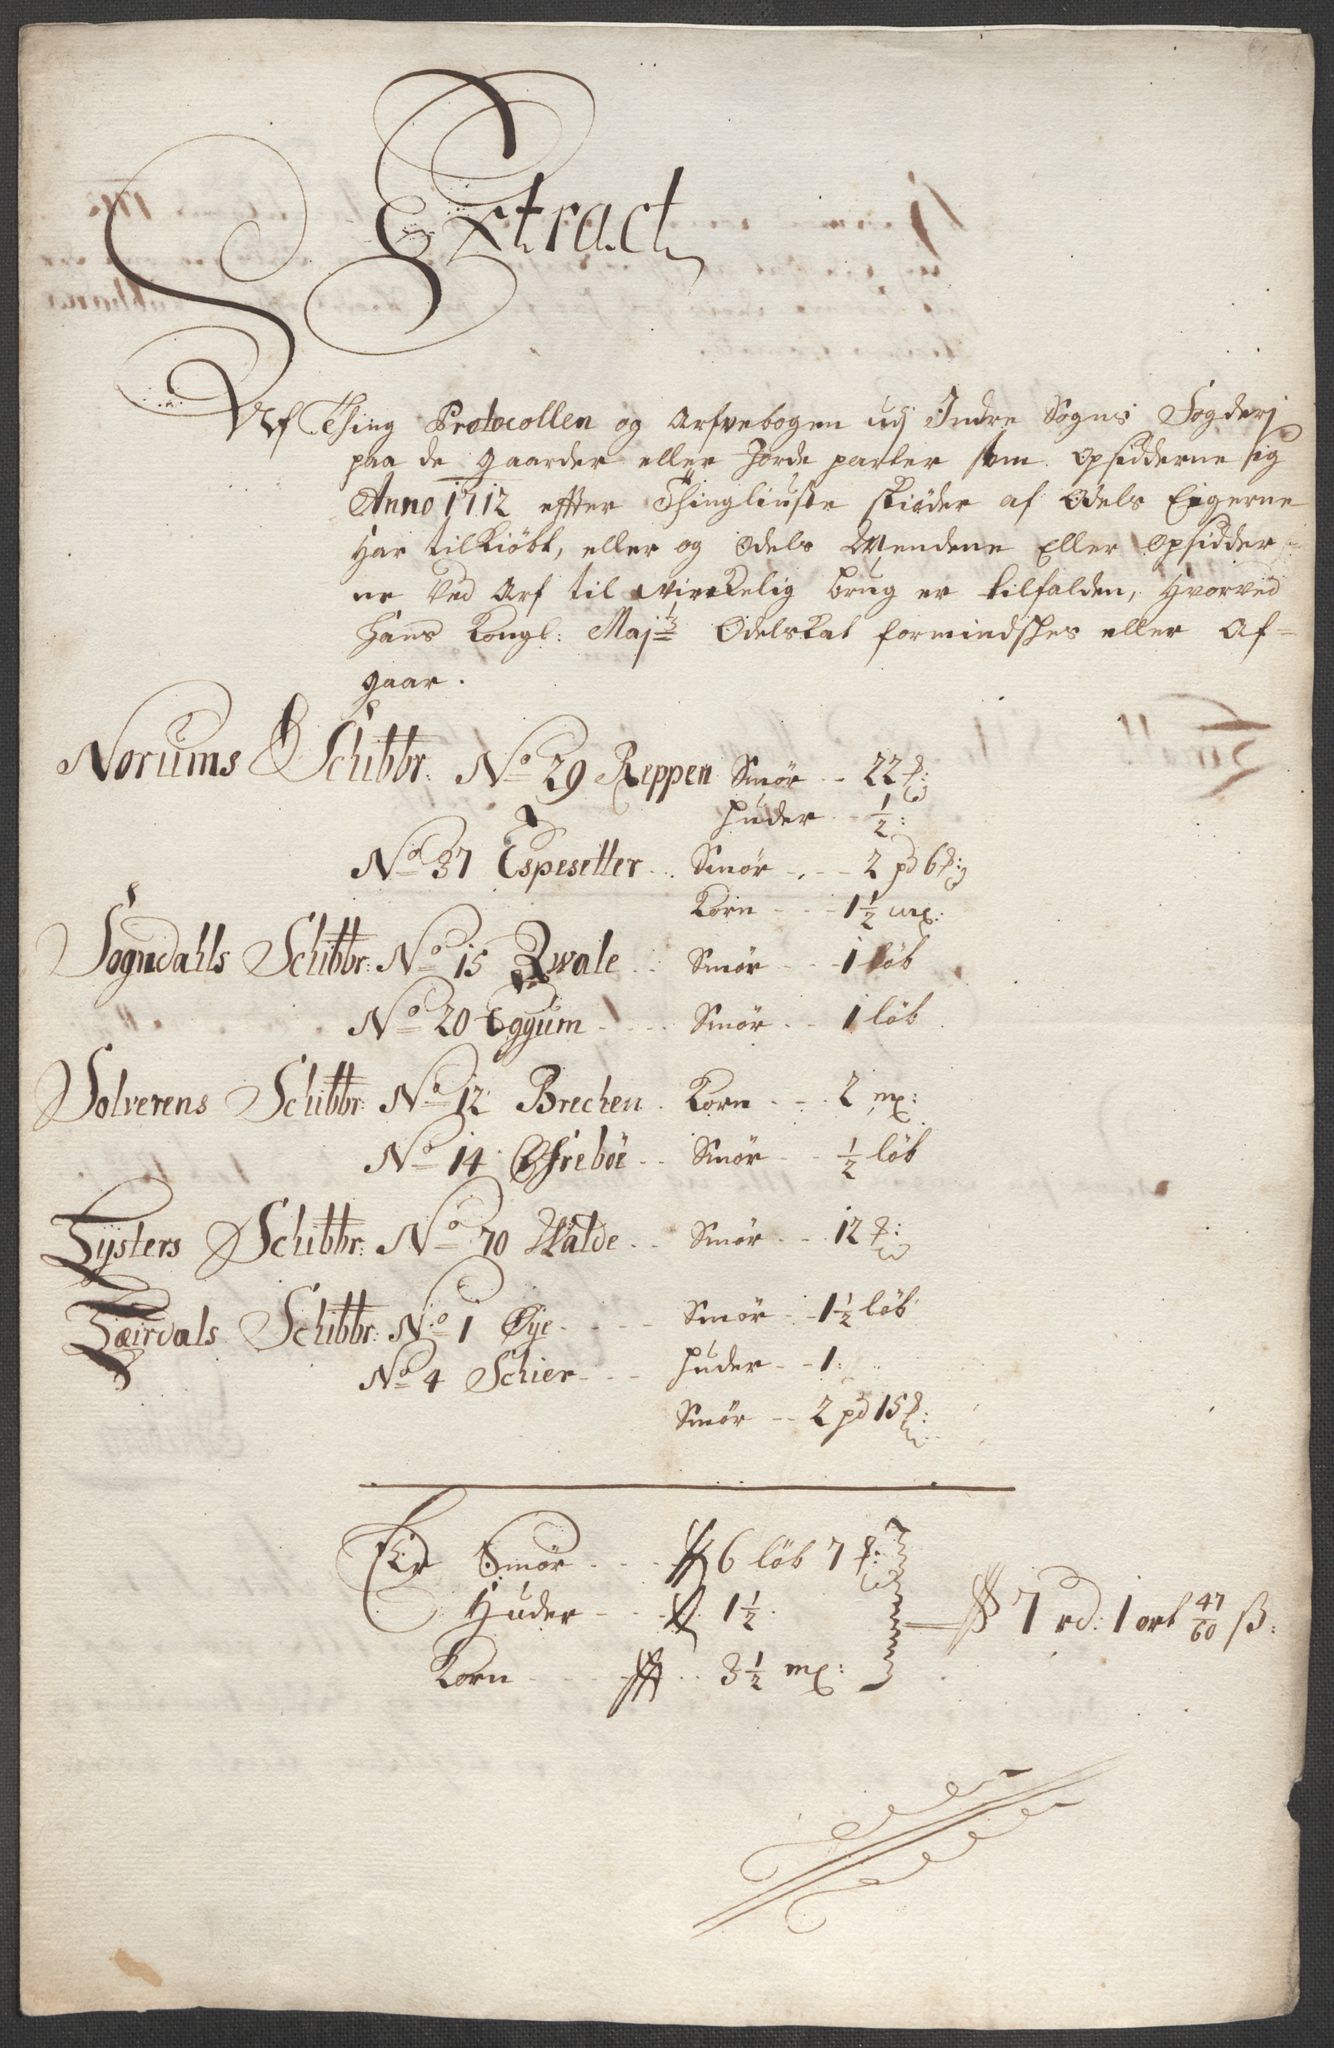 Extract
Af Thing Protocollen og Arfvebogen udj Indre Sogns Fogderj
paa de gaarder eller Jorde parter som opsidderne sig
Anno 1712 efter Thingliuste skiøder af Odels Eigerne
har tilkiøbt, eller og Odels Mendene Eller opsidder-
ne Ved Arf til virckelig brug er tilfalden, hvorved
Hans Kongl: Maj:ts Odelskat formindsches eller af-
gaar.
Norums Schibbr: No 29 Reppen Smør -- 22 ℔:
Huder 1/2:
No 37 Espesetter .. Smør -.-- 2 pd 6 ℔:
Korn --- 1 1/2 mx:
Sogndahls Schibbr: No 15 Qwale .. Smør --- 1 løb
No 20 Eggum - . . . Smør -- 1 løb
Solverens Schibbr: No 12 Brechen . Korn --- 2 mx:
No 14 Øfrebøe .. Smør --- 1/2 løb
Lysters Schibbr: No 70 Walde .. Smør -- 12 ℔:
Læirdals Schibbr: No 1 Øye - . . - Smør - 1 1/2 løb
No 4 Schier - - - Huder -- 1:
Smør -- 2 pd 15 ℔:
Er Smør - - - 6 løb 7 ℔:
Huder - - - 1 1/2. 7 rd: 1 ort 47/60 ß:
Korn - - - - . . 3 1/2 mx: